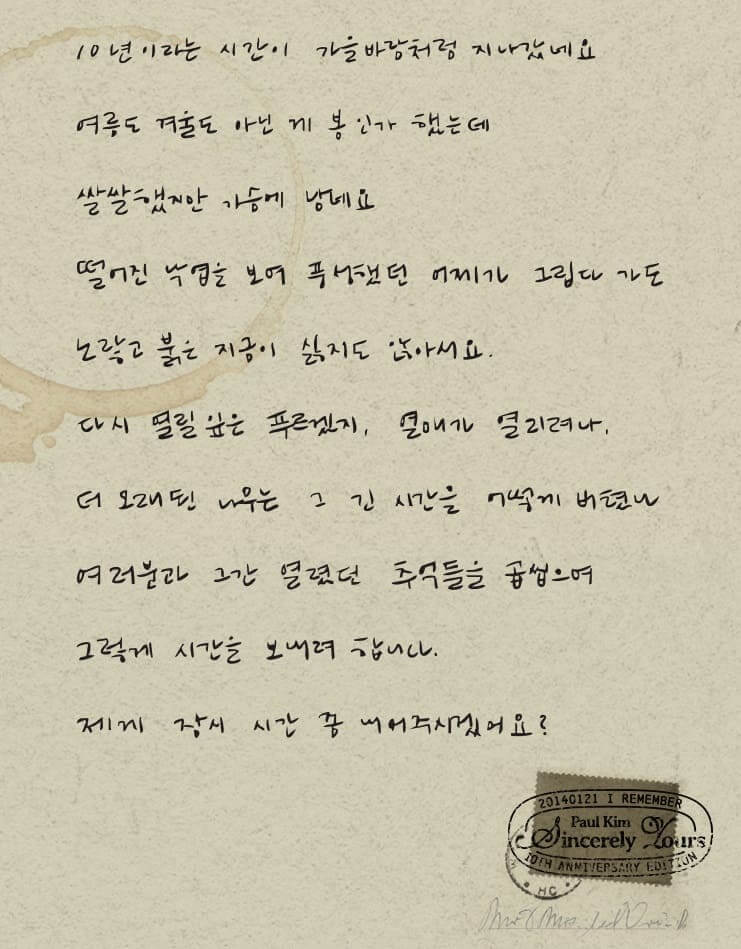 10년이라는 시간이 가을바람처럼 지나갔네요
여름도 겨울도 아닌 게 봄인가 했는데
쌀쌀했지만 가슴에 남네요
떨어진 낙엽을 보며 풍성했던 어제가 그립다 가도
노랗고 붉은 지금이 싫지도 않아서요.
다시 열릴 잎은 푸르겠지, 열매가 열리려나,
더 오래된 나무는 그 긴 시간을 어떻게 버텼나
여러분과 그간 열렸던 추억들을 곱씹으며
그렇게 시간을 보내려 합니다.
제게 잠시 시간 좀 내어주시겠어요?
20140121 I REMEMBER
Paul Kim
Sincerely Yours
10TH ANNIVERSARY EDITION
HC